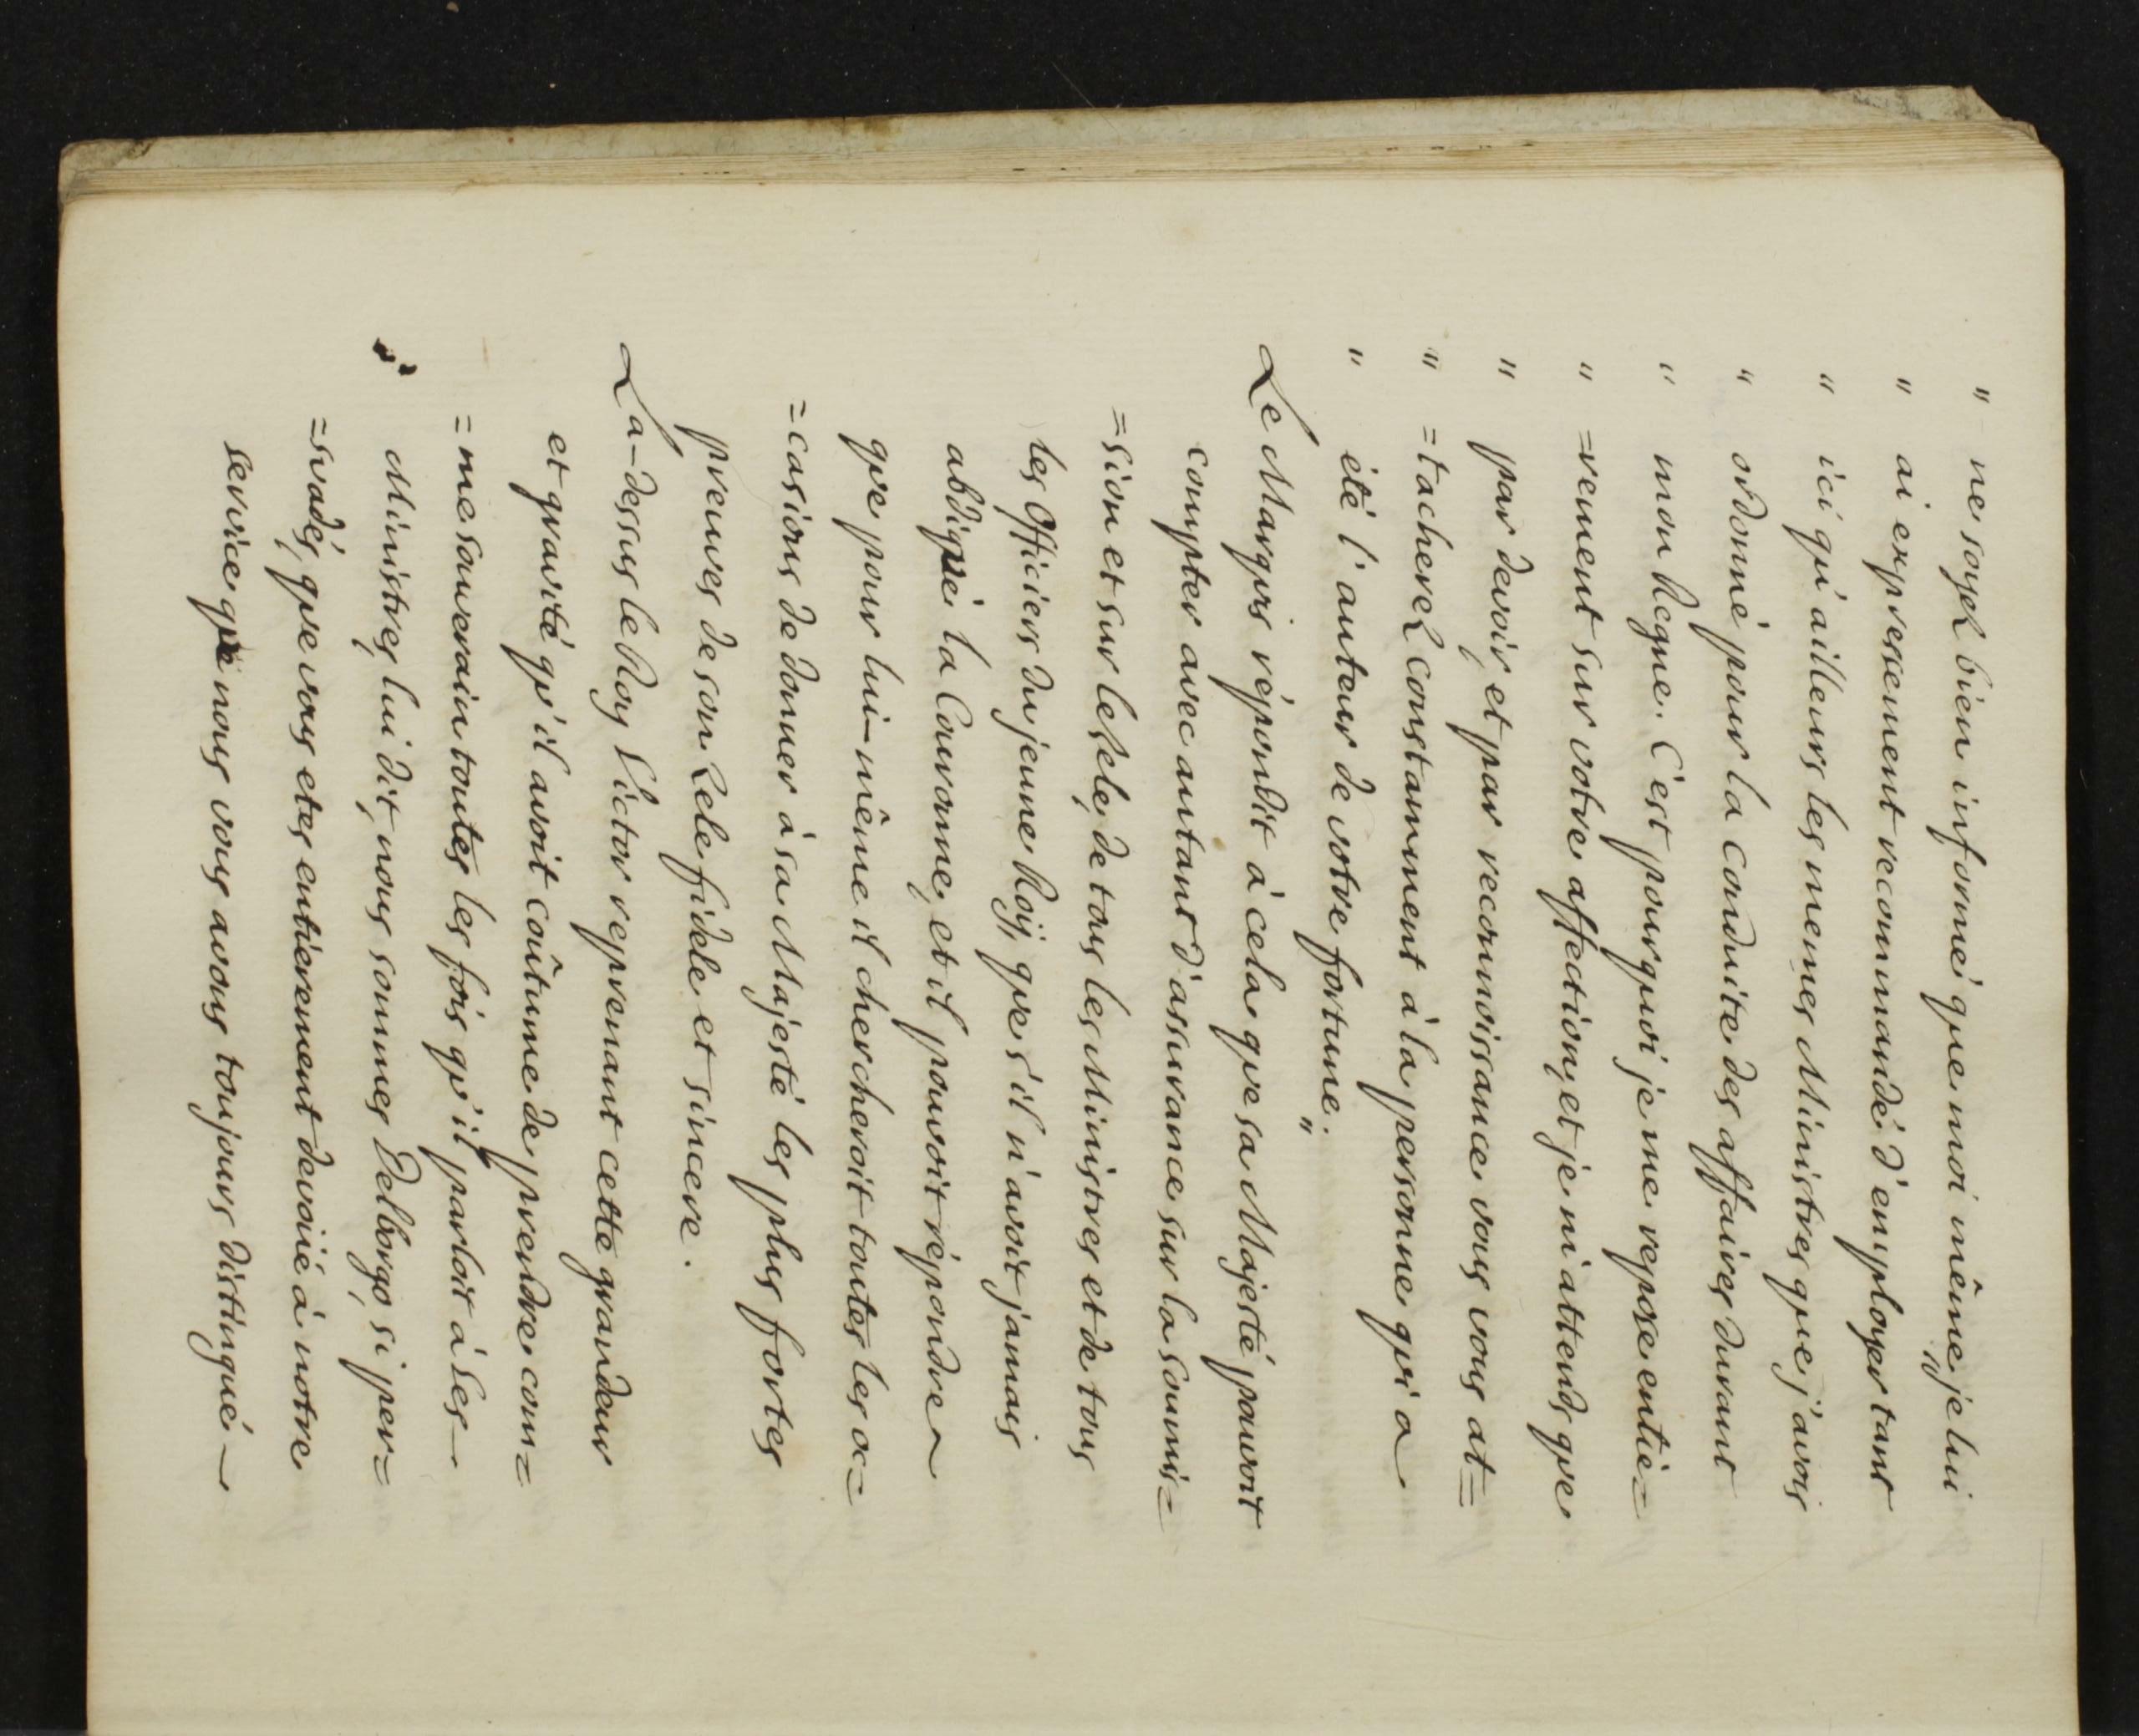 " ne soyez bien informé que moi même je lui
" ai expressement recommandé d'employer tant
" ici qu'ailleurs les memes Ministres que j'avois
" ordonné pour la conduite des affaires durant
" mon Regne. C'est pourquoi je me repose entiè=
" =rement sur votre affection, et je m'attends que
" par devoir, et par reconnoissance vous vous at=
" =tacherez constamment à la personne qui a
" été l'auteur de votre fortune."
Le Marquis répondit à cela que sa Majesté pouvoit
compter avec autant d'assurance sur la soumis=
=sion et sur le zele, de tous les Ministres et de tous
les Officiers du jeune Roij, que s'il n'avoit jamais
abdiqué la Couronne, et il pouvoit répondre
que pour lui-même il chercheroit toutes les oc=
=casions de donner à sa Majesté les plus fortes
preuves de son Zele fidele et sincere.
La-dessus le Roy Victor reprenant cette grandeur
et gravité qu'il avoit coûtume de prendre com=
=me souverain toutes les fois qu'il parloit à ses
" Ministres, lui dit, nous sommes Delborgo, si per=
=suadés, que vous etes entièrement devoüé à notre
service que nous vous avons toujours distingué